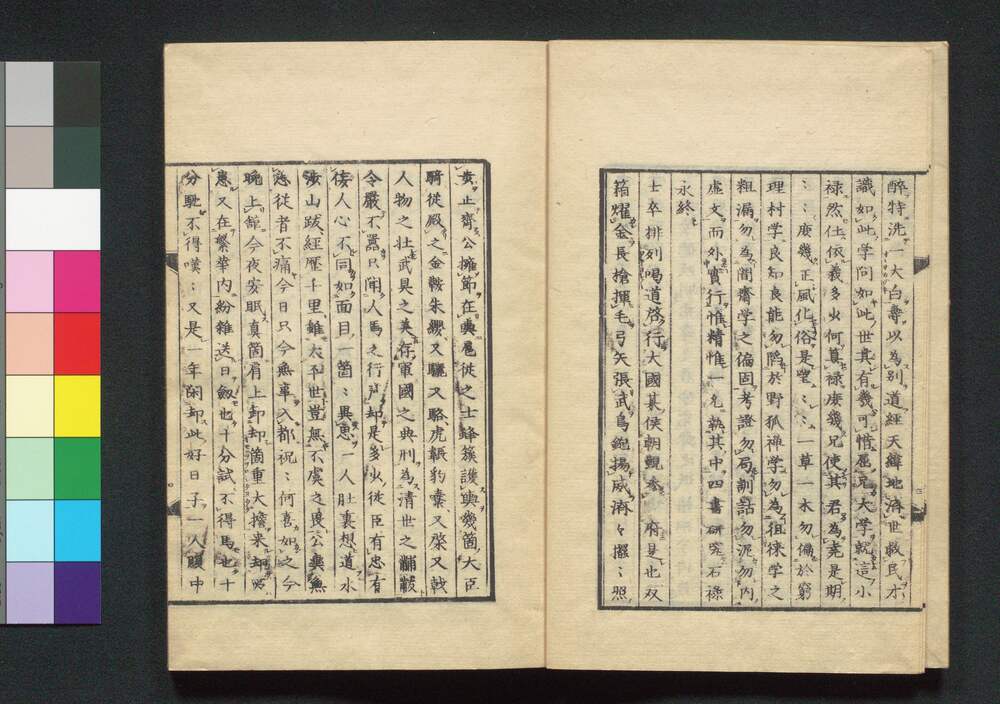 醉特洗一大白壽以為別道經天緯地濟世救民才
識如此学問如此世其有幾可惜屈兄大学就這小
禄然仕依義多少何真禄庶幾兄使其君為堯是期
〻〻庶幾正風化俗是望〻〻〻一草一木勿偏於窮
理村学良知良能勿陷於野狐禅学勿為徂徠学之
粗漏勿為闇齋学之偏固考證勿局訓詁勿泥勿内
虚文而外實行惟精惟一允執其中四書研究石禄
永終
士卒排列喝道啓行大國某侯朝覲参 府是也双
箱燿金長槍揮毛弓矢張武鳥銃揚威濟々擺〻照
黄止齋公擁節在輿扈従之士蜂簇護輿幾箇大臣
騎從殿之金鞍朱纓又驪又駱虎韔豹橐又棨又戟
人物之壮武具之美存軍國之典刑為清世之黼黻
令嚴不囂只聞人馬之行声却是多少従臣有忠有
佞人心不同如面目一箇〻異思一人肚裏想道水
渉山跋經歴千里雖太平世豈無不虞之畏公輿無
恙從者不痛今日只今無事入都祝〻何喜如之今
晩上舘今夜安眠真箇肩上卸却箇重大擔来却必
患又在繁華内紛雜送日劔也十分試不得馬也十
分馳不得嘆〻又是一年閑却此好日子一人腹中